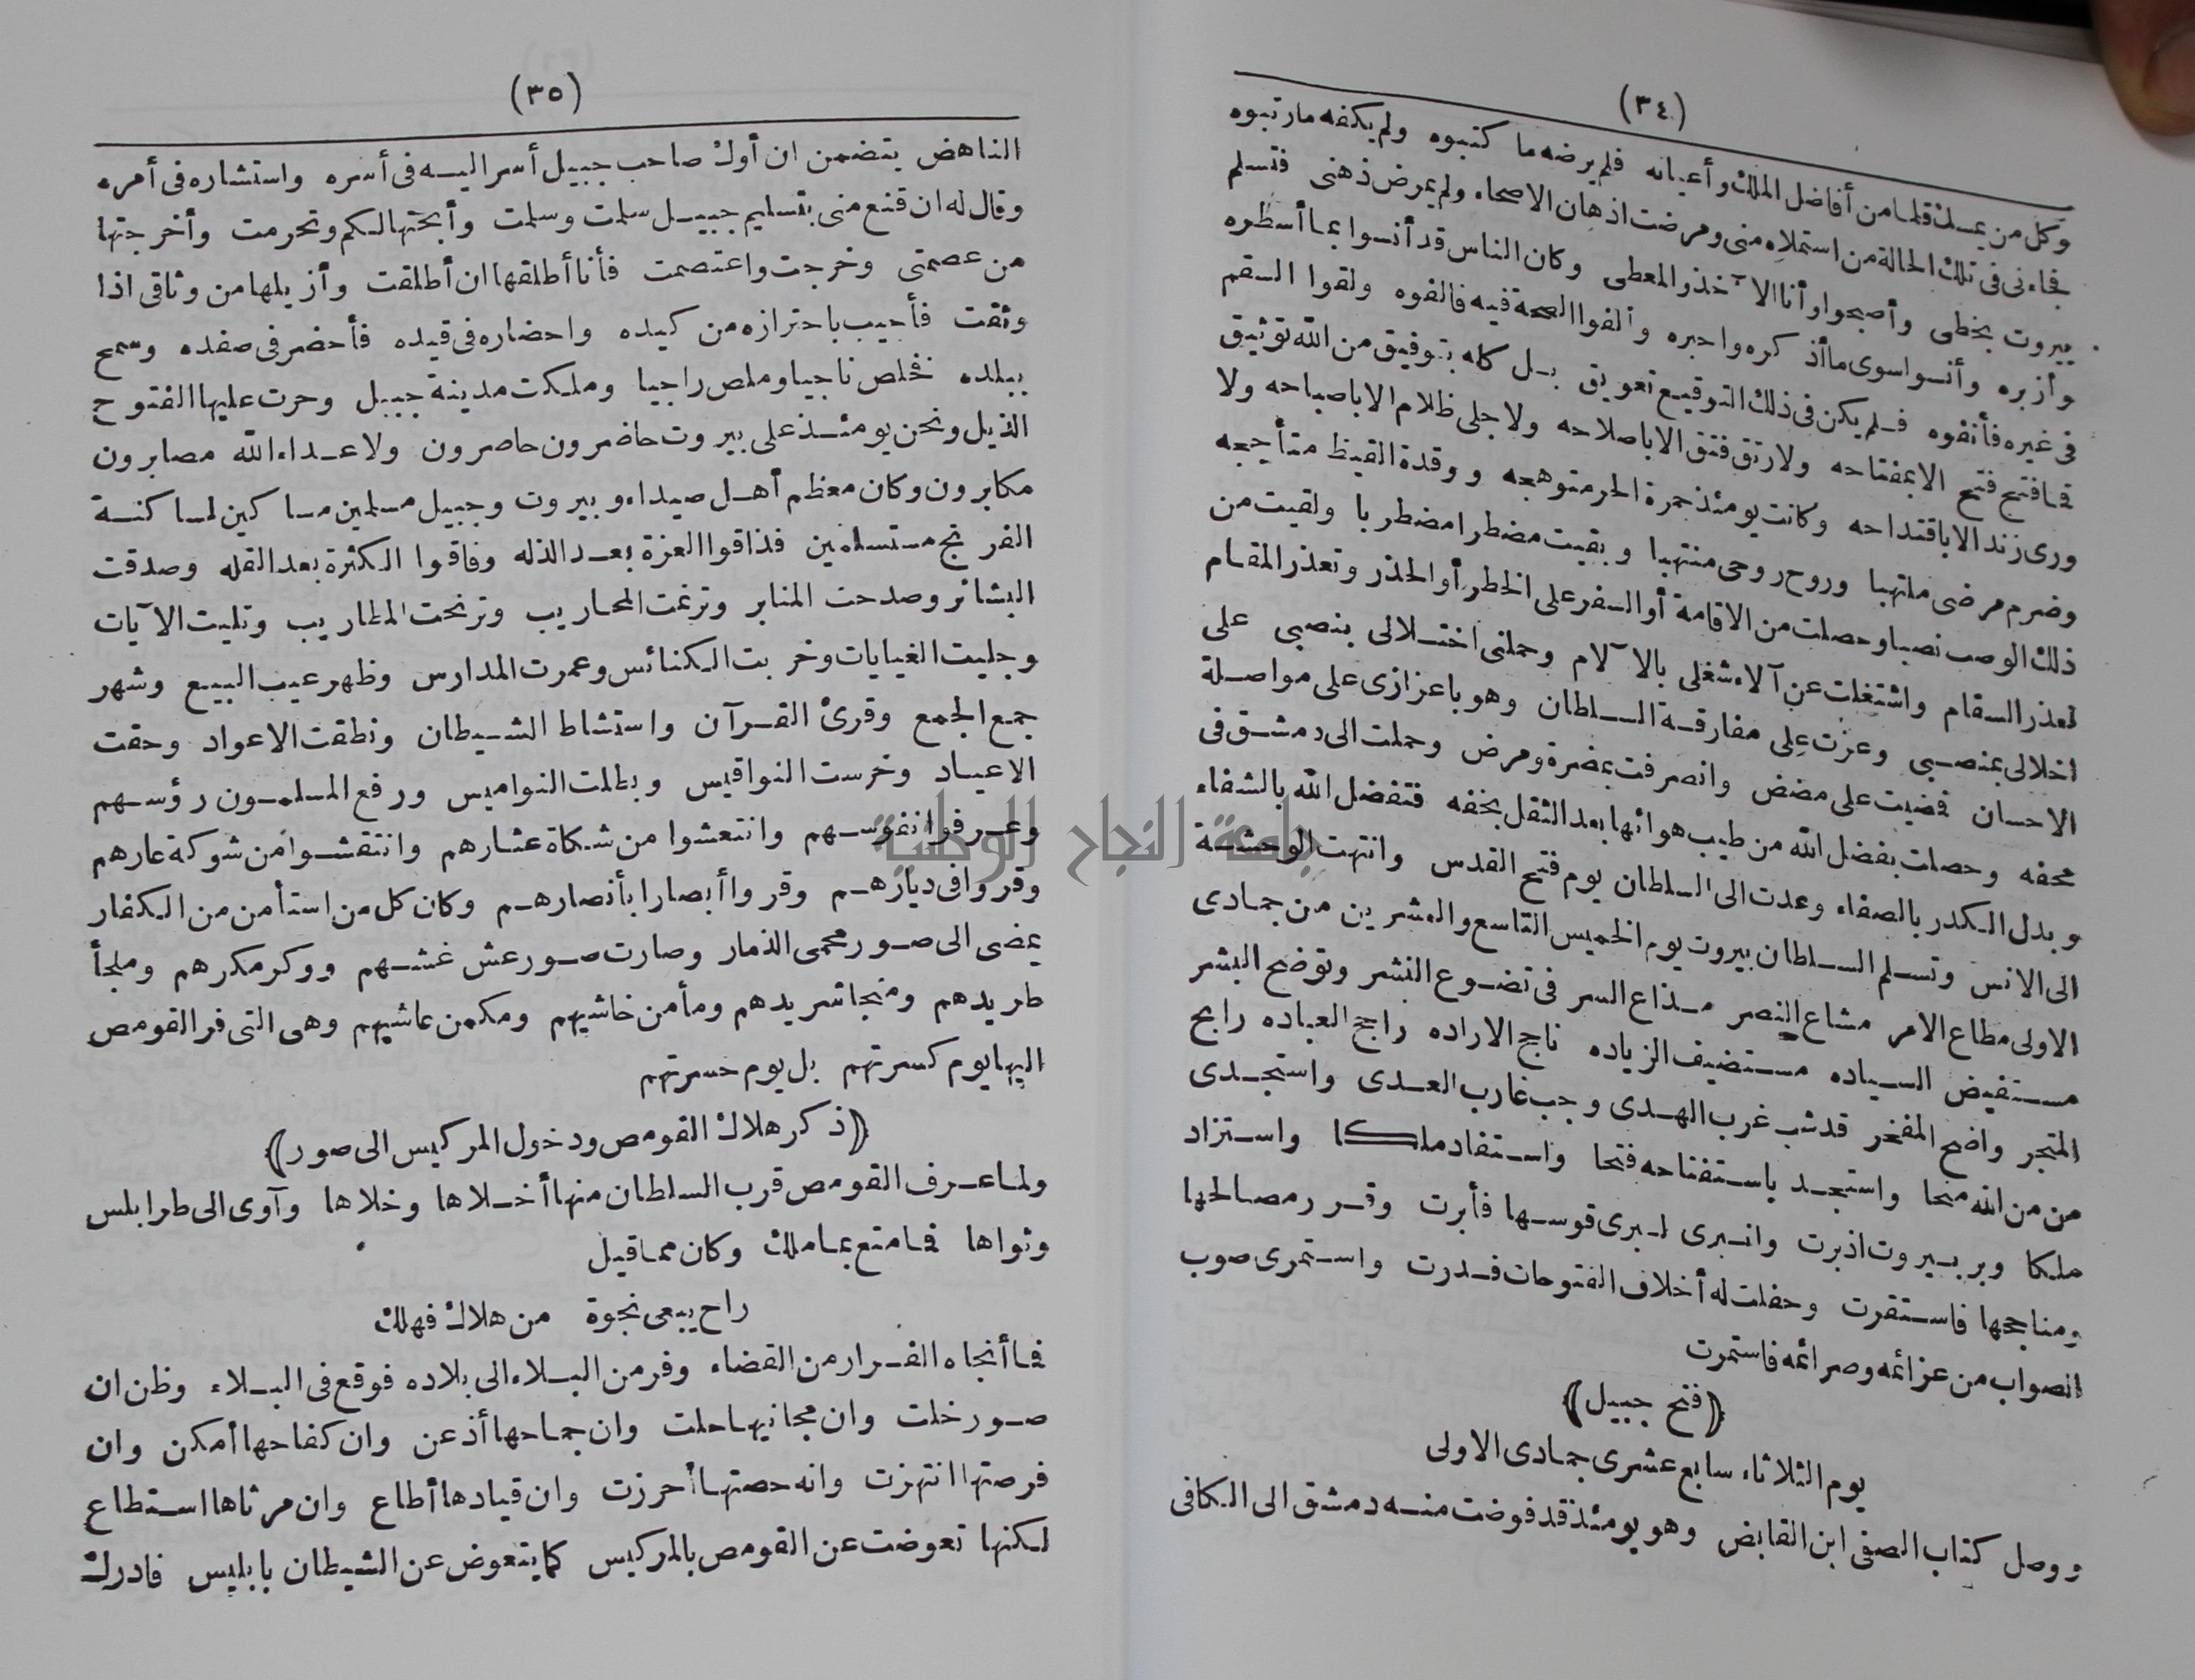 (٣٤)
وكل من يمسك قلما من أفاضل الملك وأعيانه فلم يرضه ما كتبوه ولم يكفه ما رتبوه
فجاءنى فى تلك الحالة من استملاه منى ومرضت اذهان الاصحاء ولم يمرض ذهنى فتسلم
بيروت بخطى وأصبحوا وأنا الآخذ والمعطى وكان الناس قد أنسوا بما أسطره
وأزبره وأنسوا سوى ما أذكره واحبره وألفوا الصحة فيه فالفوه ولقوا السقم
فى غيره فأنفوه فلم يكن فى ذلك التوقيع تعويق بل كله بتوفيق من الله توثيق
فما فتح فتح الا بمفتاحه ولا رتق فتق الا باصلاحه ولا جلى ظلام الا باصباحه ولا
ورى زند الا باقتداحه وكانت يومئذ جمرة الحر متوهجه ووقدة القيظ متأججه
وضرم مرضى ملتهبا وروح روحى منتهبا وبقيت مضطرا مضطربا ولقيت من
ذلك الوصب نصبا وحصلت من الاقامة أو السفر على الخطر أو الحذر وتعذر المقام
لعذر السقام واشتغلت عن آلاء شغلى بالآلام وحملنى اختلالى بنصبى على
اخلالى بمنصبى وعزت على مفارقة السلطان وهو باعزازى على مواصلة
الاحسان فمضيت على مضض وانصرفت بمضرة ومرض وحملت الى دمشق فى
محفه وحصلت بفضل الله من طيب هوائها بعد الثقل بخفه فتفضل الله بالشفاء
وبدل الكدر بالصفاء وعدت الى السلطان يوم فتح القدس وانتهت الوحشة
الى الانس وتسلم السلطان بيروت يوم الخميس التاسع والعشرين من جمادى
الاولى مطاع الامر مشاع النصر مذاع السر فى تضوع النشر وتوضح البشر
مستفيض السياده مستضيف الزياده ناجح الاراده راجح العباده رابح
المتجر واضح المفخر قد شب غرب الهدى وجب غارب العدى واستجدى
من من الله منحا واستجد باستفتاحه فتحا واستفاد ملكا واستزاد
ملكا وبر بيروت اذ برت وانبرى لبرى قوسها فأبرت وقرر مصالحها
ومناجحها فاستقرت وحفلت له أخلاف الفتوحات فدرت واستمرى صوب
الصواب من عزائمه وصرائمه فاستمرت
﴿فتح جبيل﴾
يوم الثلاثاء سابع عشرى جمادى الاولى
ووصل كتاب الصفى ابن القابض وهو يومئذ قد فوضت منه دمشق الى الكافى
(٣٥)
الناهض يتضمن ان أوك صاحب جبيل أسر اليه فى أسره واستشاره فى أمره
وقال له ان قنع منى بتسليم جبيل سلمت وسلمت وأبحتها لكم وتحرمت وأخرجتها
من عصمتى وخرجت واعتصمت فأنا أطلقها ان أطلقت وأزيلها من وثاقى اذا
وثقت فأجيب باحترازه من كيده واحضاره فى قيده فأحضر فى صفده وسمح
ببلده فخلص ناجيا وملص راجيا وملكت مدينة جبيل وجرت عليها الفتوح
الذيل ونحن يومئذ على بيروت حاضرون حاصرون ولاعداء الله مصابرون
مكابرون وكان معظم أهل صيداء وبيروت وجبيل مسلمين مساكين لمساكنة
الفرنج مستسلمين فذاقوا العزة بعد الذله وفاقوا الكثرة بعد القله وصدقت
البشائر وصدحت المنابر وترنمت المحاريب وترنحت المطاريب وتليت الآيات
وجليت الغيايات وخربت الكنائس وعمرت المدارس وظهر عيب البيع وشهر
جمع الجمع وقرئ القرآن واستشاط الشيطان ونطقت الاعواد وحقت
الاعياد وخرست النواقيس وبطلت النواميس ورفع المسلمون رؤسهم
وعرفوا نفوسهم وانتعشوا من شكاة عثارهم وانتقشوا من شوكة عارهم
وقروا فى ديارهم وقروا أبصارا بأنصارهم وكان كل من استأمن من الكفار
يمضى الى صور محمى الذمار وصارت صور عش غشهم ووكر مكرهم وملجأ
طريدهم ومنجا شريدهم ومأمن خاشيهم ومكمن عاشيهم وهى التى فر القومص
اليها يوم كسرتهم بل يوم حسرتهم
﴿ذكر هلاك القومص ودخول المركيس الى صور﴾
ولما عرف القومص قرب السلطان منها أخلاها وخلاها وآوى الى طرابلس
وثواها فما متع بما ملك وكان مما قيل
راح يبغى نجوة من هلاك فهلك
فما أنجاه الفرار من القضاء وفر من البلاء الى بلاده فوقع فى البلاء وظن ان
صور خلت وان مجانيها حلت وان جماحها أذعن وان كفاحها أمكن وان
فرصتها انتهزت وانه حصتها أحرزت وان قيادها أطاع وان مرتاها استطاع
لكنها تعوضت عن القومص بالمركيس كما يتعوض عن الشيطان بابليس فادرك
جامعة النجاح الوطنية